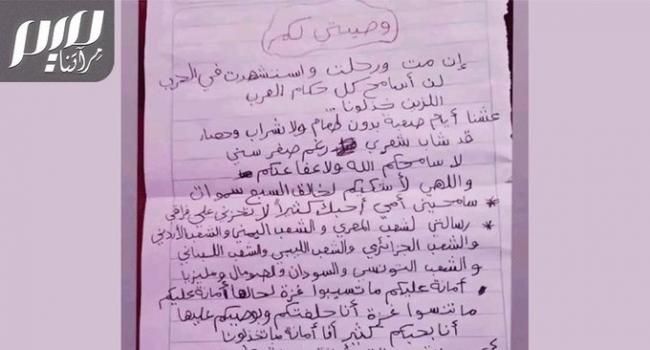 مرآتنا
وصيتي لكم
إن مت ورحلت واستشهدت في الحرب
لن أسامح كل حكام العرب
اللذين خذلونا...
عشنا أيام صعبة بدون طعام ولا شراب وحصار
قد شاب شعري رغم صغر سني
لا سامحكم الله ولا عفا عنكم
واللهي لأشكيكم لخالق السبع سموات
* سامحيني أمي أحبك كثيراً لا تحزني على فراقي
* رسالتي لشعب المصري والشعب اليمني والشعب الأردني
والشعب الجزائري والشعب الليبي ولشعب اللبناني
والشعب التونسي والسودان ولصومال ومليزيا
أمانة عليكم ما تسيبوا غزة لحالها أمانة عليكم
ما تنسوا غزة أنا حلفتكم وبوصيكم عليها
أنا بحبكم كثير أنا أمانة ما تخذلونا